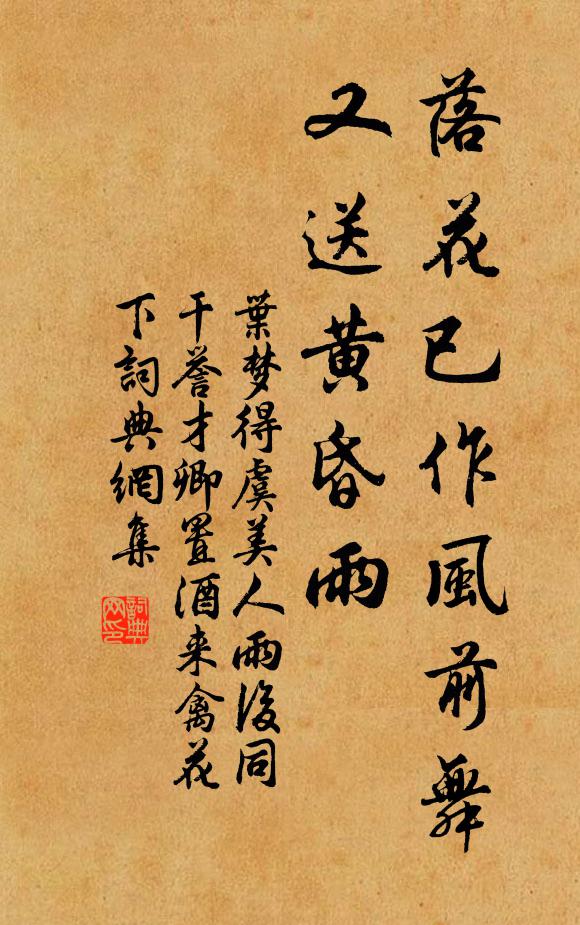 落花已作風前舞
又送黄昏雨
葉梦得虞美人雨後同
干誉才卿置酒来禽花
下詞典網集
詞典网印